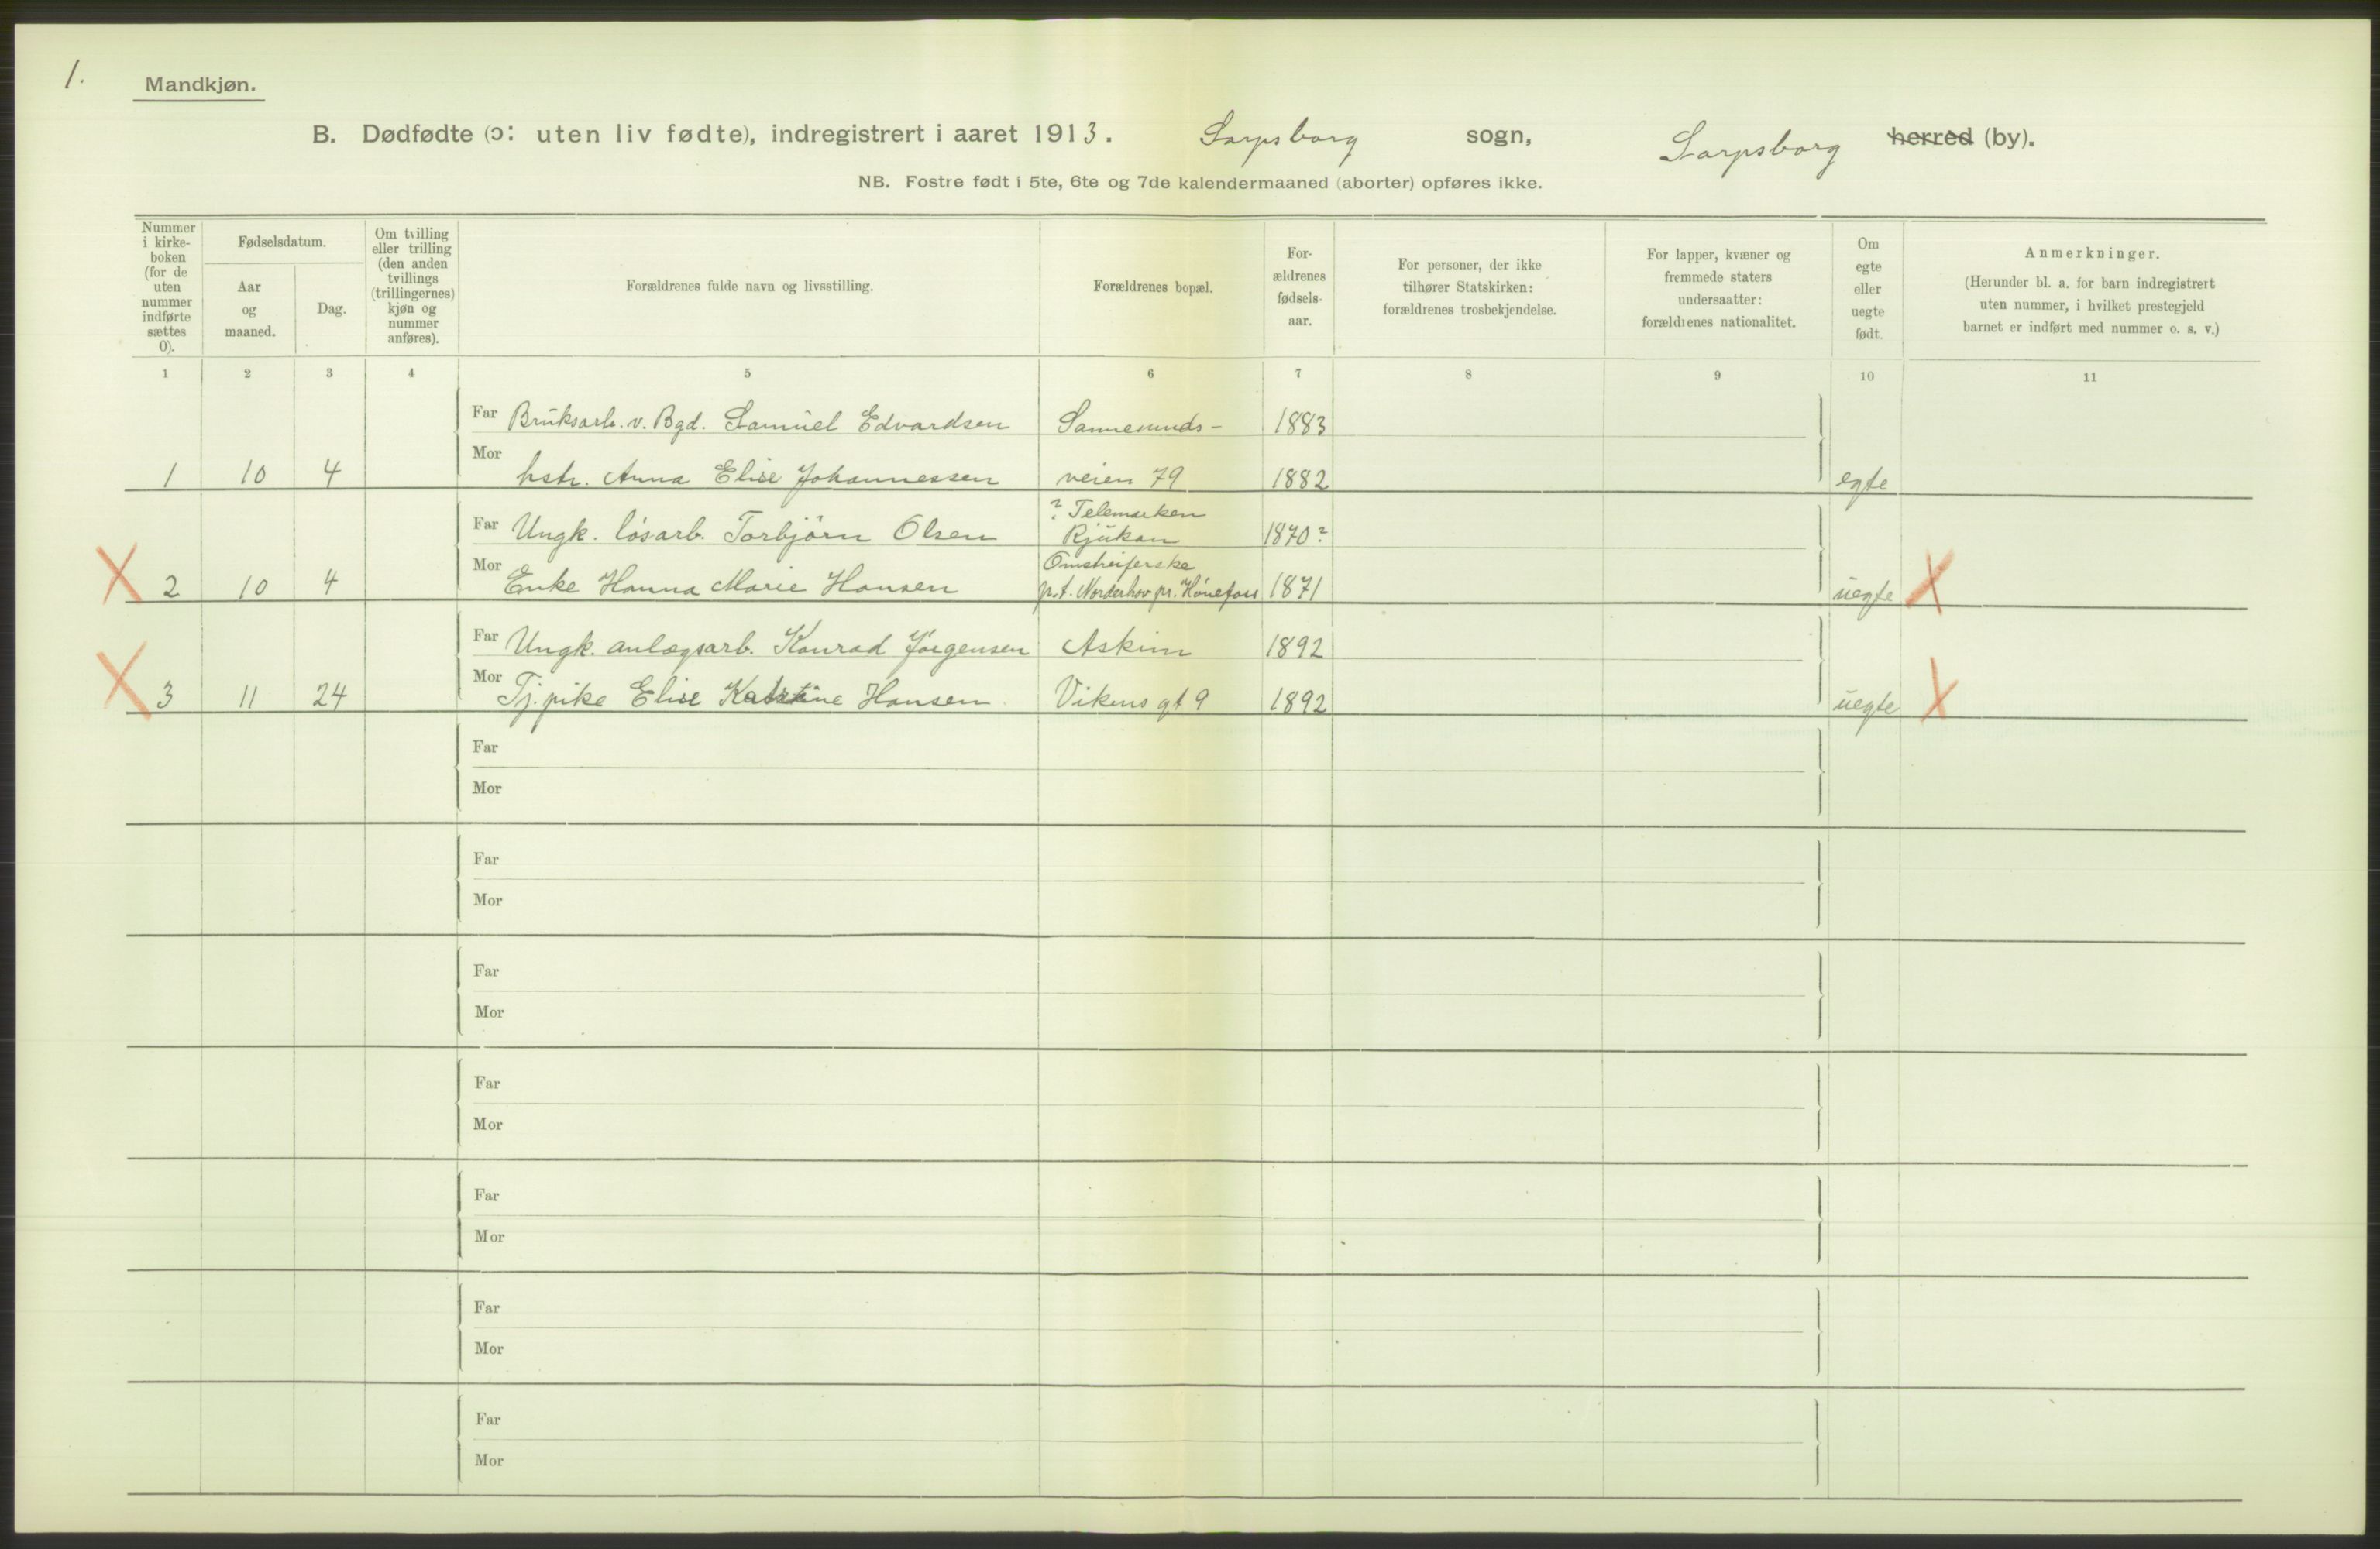 1.
Mandkjøn.
B. Dødfødte (ɔ: uten liv fødte), indregistrert i aaret 1913. Sarpsborg sogn, Sarpsborg herred (by).
NB. Fostre født i 5te, 6te og 7de kalendermaaned (aborter) opføres ikke.
Nummer i kirke-boken (for de uten nummer indførte sættes 0).
Fødselsdatum.
Aar og maaned.
Dag.
Om tvilling eller trilling (den anden tvillings (trillingernes) kjøn og nummer anføres).
Forældrenes fulde navn og livsstilling.
Forældrenes bopæl.
For-ældrenes fødsels-aar.
For personer, der ikke tilhører Statskirken: forældrenes trosbekjendelse.
For lapper, kvæner og fremmede staters undersaatter: forældrenes nationalitet.
Om egte eller uegte født.
Anmerkninger.
(Herunder bl. a. for barn indregistrert uten nummer, i hvilket prestegjeld barnet er indført med nummer o. s. v.)
1 2 3 4 5 6 7 8 9 10 11
Far Bruksarb. v. Bgd. Samuel Edvardsen Sannesunds- 1883
1 10 4 Mor hstr. Anna Elise Johannessen veien 79 1882 egte
? Telemarken
Far Ungk. løsarb. Torbjørn Olsen Rjukan 1870?
Omstreiferske
X 2 10 4 Mor Enke Hanna Marie Hansen p.t. Norderhov pr. Hønefoss 1871 uegte X
Far Ungk. anlægsarb. Konrad Jørgensen Askim 1892
X 3 11 24 Mor Tj.pike Elise Hansen Vikens gt 9 1892 uegte X
Far
Mor
Far
Mor
Far
Mor
Far
Mor
Far
Mor
Far
Mor
Far
Mor